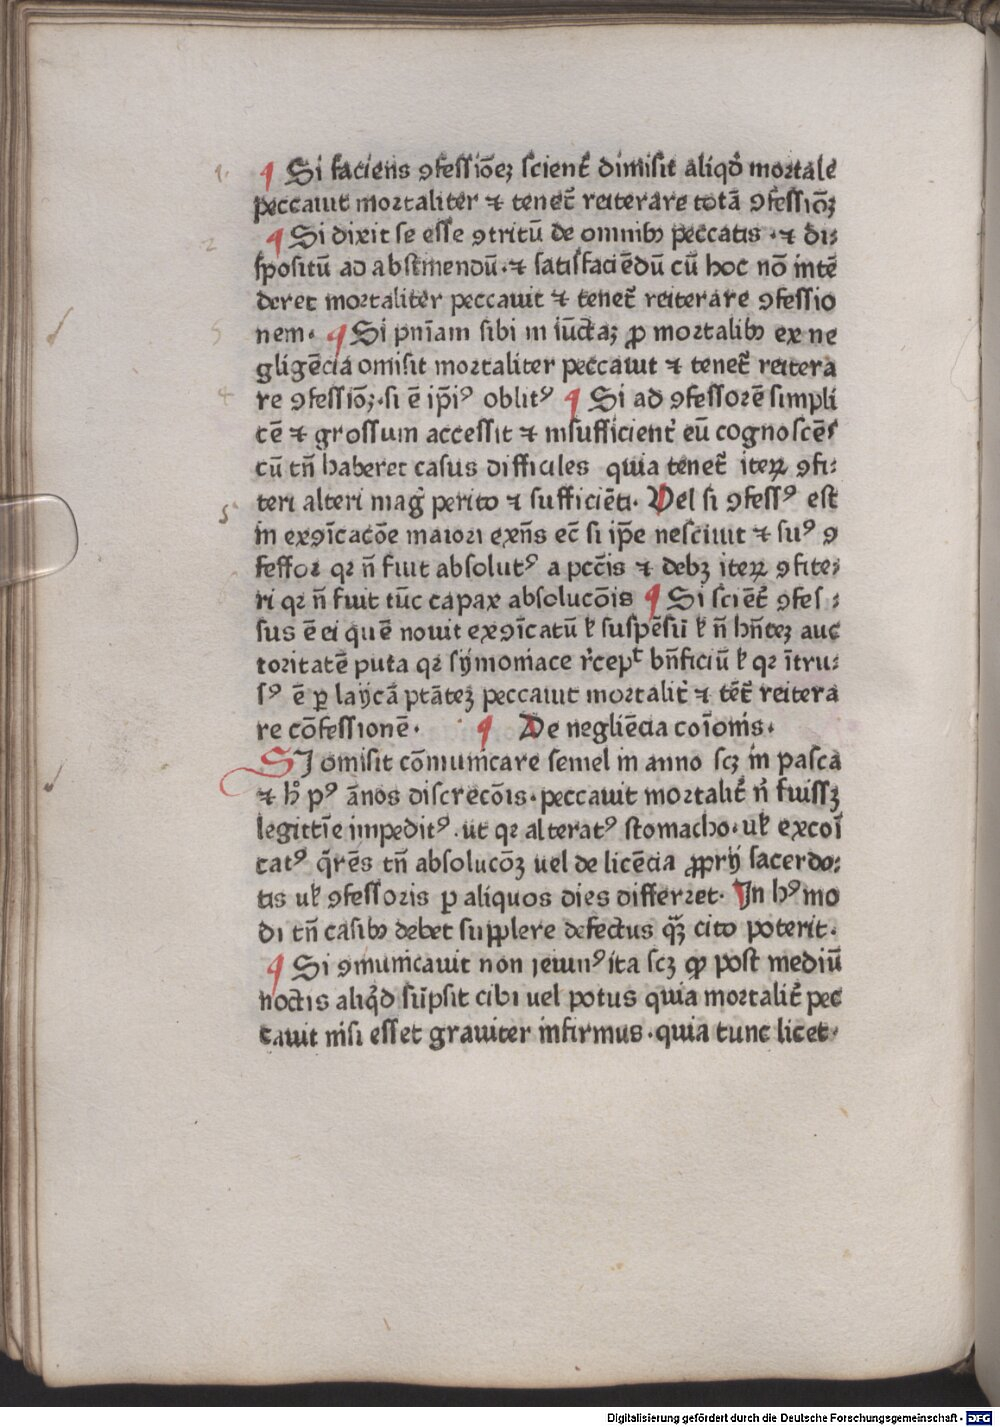 1.
¶ Si faciens ꝯfessiōeꝫ scient̃ dimisit aliqd̉ mortale
peccauit mortaliter ⁊ tenet̃ reiterare totā ꝯfessiōꝫ
2
¶ Si dixit se esse ꝯtritū de omnibꝰ peccatis · ⁊ di⸗
spositū ad abstinendū · ⁊ satisfaciēdū cū hoc nō intē
deret mortaliter peccauit ⁊ tenet̃ reiterare ꝯfessio
nem · ¶ Si pn̄iam sibi in iūctaꝫ ꝓ mortalibꝰ ex ne
gligēcia omisit mortaliter peccauit ⁊ tenet̃ reitera
4
re ꝯfessiōꝫ · si ē ip̄iꝰ oblitꝰ ¶ Si ad ꝯfessorē simpli
cē ⁊ grossum accessit ⁊ insufficient̃ eū cognoscēs
cū tn̄ haberet casus difficiles quia tenet̃ iteꝝ ꝯfi⸗
teri alteri mag̉ perito ⁊ sufficiēti · Vel si ꝯfessꝰ est
5
in exꝯīcacōe maiori exn̄s ec̄ si ip̄e nesciuit ⁊ suꝰ ꝯ
fessor qꝛ n̄ fuit absolutꝰ a pcc̄is ⁊ debꝫ iteꝝ ꝯfite⸗
ri qꝛ n̄ fuit tūc capax absolucōis ¶ Si scient̃ ꝯfes⸗
sus ē ei quē nouit exꝯīcatū ł suspēsū ł n̄ hn̄teꝫ auc
toritatē puta qꝛ sẏmoniace r̉cepͭ bn̄ficiū ł qꝛ ītru⸗
sꝰ ē ꝑ laẏcā ptāteꝫ peccauit mortalit̉ ⁊ tēt̃ reitera
re cōfessionē · ¶ De negliēcia coīonis ·
SI omisit cōmunicare semel in anno scꝫ in pasca
⁊ h̉ pꝰ ānos discrecōis · peccauit mortalit̃ n̄ fuissꝫ
legittīe impeditꝰ · ut qꝛ alteratꝰ stomacho · uł excoī
catꝰ q̄rēs tn̄ absolucōꝫ uel de licēcia ꝓprij sacerdo⸗
tis uł ꝯfessoris ꝑ aliquos dies differret · In hꝰ mo
di tn̄ casibꝰ debet supplere defectus qꝫ̃ cito poterit ·
¶ Si ꝯmunicauit non ieiunꝰ ita scꝫ ꝙ post mediū
noctis aliqd̉ sūpsit cibi uel potus quia mortalit̃ pec
cauit nisi esset grauiter infirmus · quia tunc licet ·
Digitalisierung gefördert durch die Deutsche Forschungsgemeinschaft - DFG